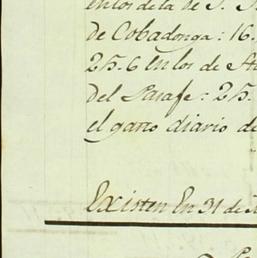 en los de la de S. S
de Cobadonga: 16.
25. 6 en los de A
del Parage: 25.
el gasto diario de
Existen En 31 de